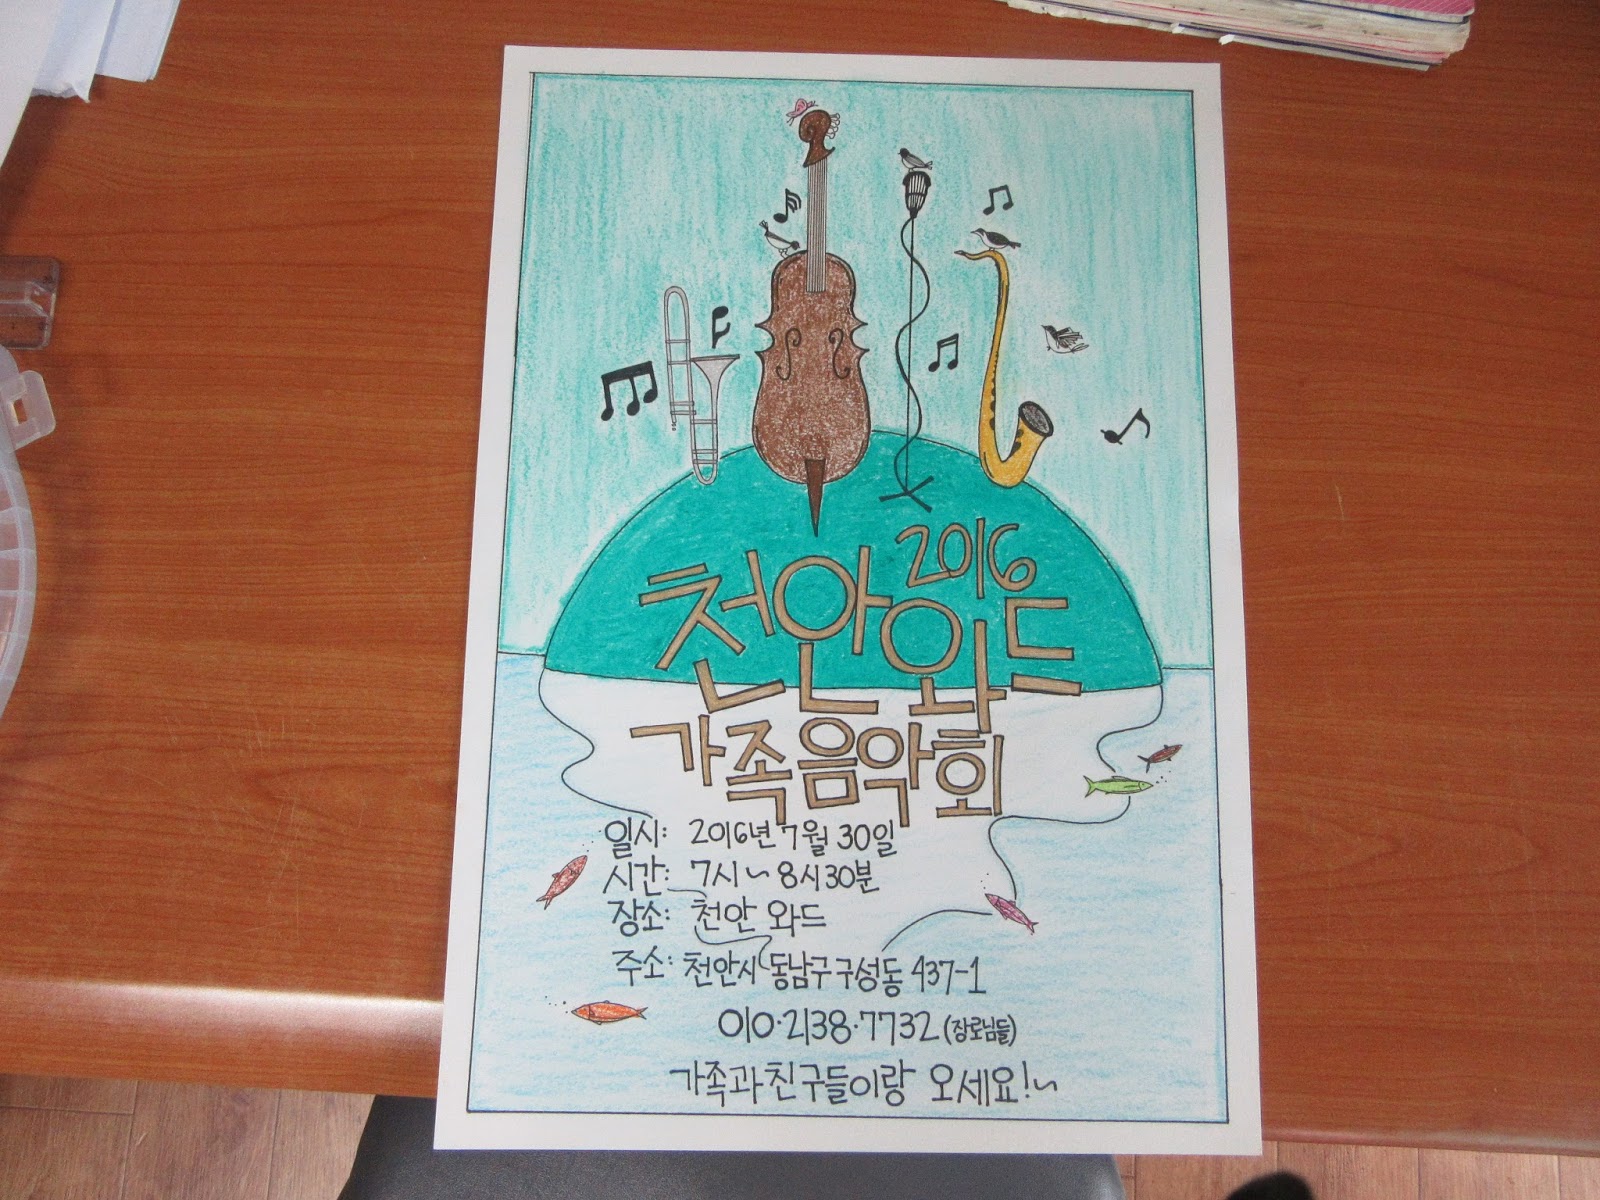 2016
천안 와드
가족음악회
일시: 2016년 7월 30일
시간: 7시~8시30분
장소: 천안 와드
주소: 천안시 동남구 구성동 437-1
010·2138·7732 (장로님들)
가족과 친구들이랑 오세요!~